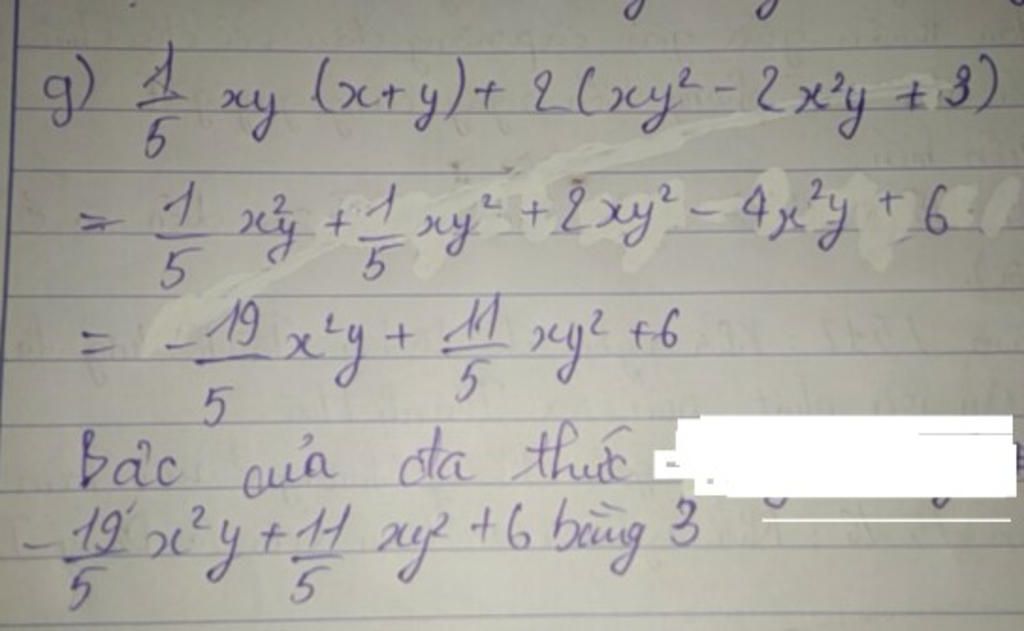 g) 1/5 xy (x+y) + 2(xy² - 2x²y + 3)
= 1/5 x²y + 1/5 xy² + 2xy² - 4x²y + 6
= -19/5 x²y + 11/5 xy² + 6
Bậc của đa thức
-19/5 x²y + 11/5 xy² + 6 bằng 3